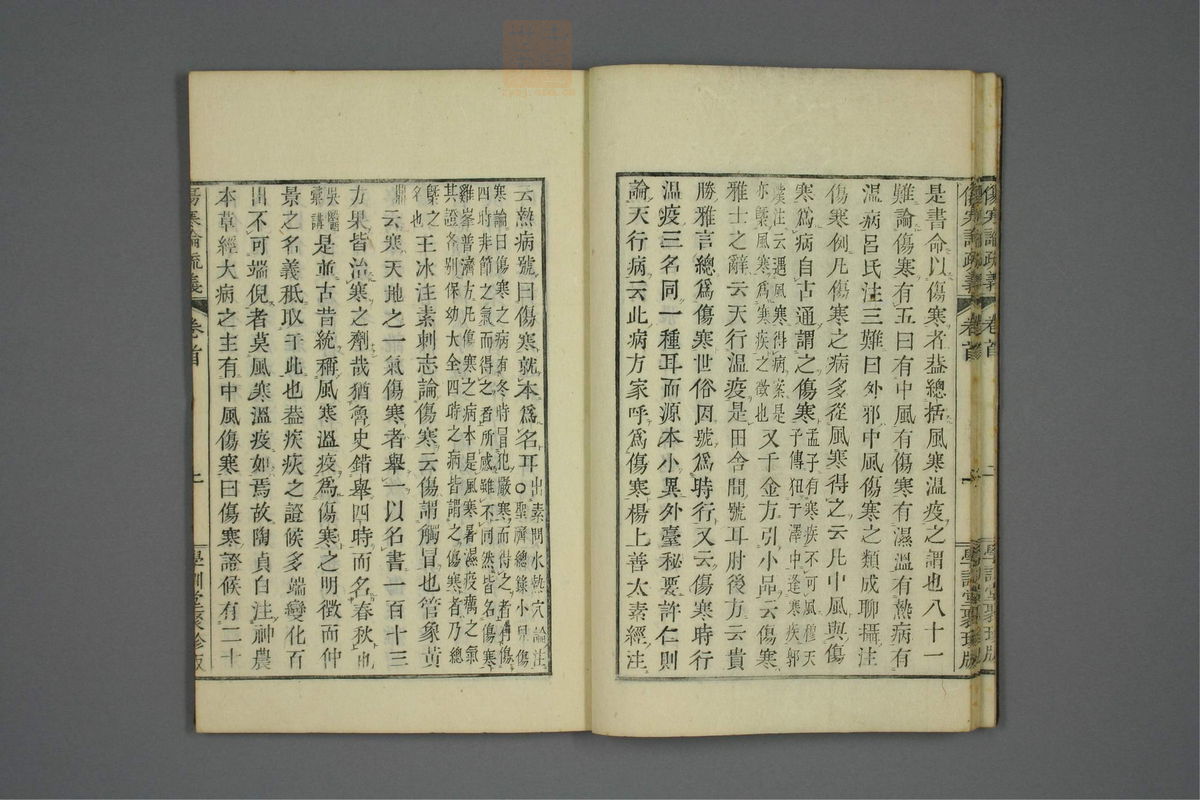 是書命以傷寒者蓋總括風寒溫疫之謂也八十一
難論傷寒有五曰有中風有傷寒有濕溫有熱病有
溫病呂氏注三難曰外邪中風傷寒之類成聊攝注
傷寒例凡傷寒之病多從風寒得之云凡中風與傷
寒爲病自古通謂之傷寒孟子有寒疾不可風僖天
子傳狃于澤中逢寒疾郭
璞注云遇風寒得病案是
亦槩風寒爲寒疾之徵也又千金方引小品云傷寒
雅士之辭云天行溫疫是田舍間號耳肘後方云貴
勝雅言總爲傷寒世俗因號爲時行又云傷寒時行
溫疫三名同一種耳而源本小異外臺秘要許仁則
論天行病云此病方家呼爲傷寒楊上善太素經注
云熱病號曰傷寒就本爲名耳出素問水熱穴論注
○聖濟總錄小兒傷
寒論曰傷寒之病有冬時冒犯嚴寒而得之者有傷
四時非節之氣而得之者所感雖不同然皆名傷寒
雞峯普濟方凡傷寒之病本是風寒暑濕疫癘之氣
其證各別保幼大全四時之病皆謂之傷寒者乃總
槩之
名也王冰注素刺志論傷寒云傷謂觸冒也管象黃
鼎云寒天地之一氣傷寒者舉一以名書一百十三
方果皆治寒之劑哉猶魯史錯舉四時而名春秋也
吳醫
彙講是並古昔統稱風寒溫疫爲傷寒之明徵而仲
景之名義秪取于此也蓋疾疢之證候多端變化百
出不可端倪者莫風寒溫疫如焉故陶貞白注神農
本草經大病之主有中風傷寒曰傷寒證候有二十
傷寒論疏義
卷首
上
學訓堂聚珍版